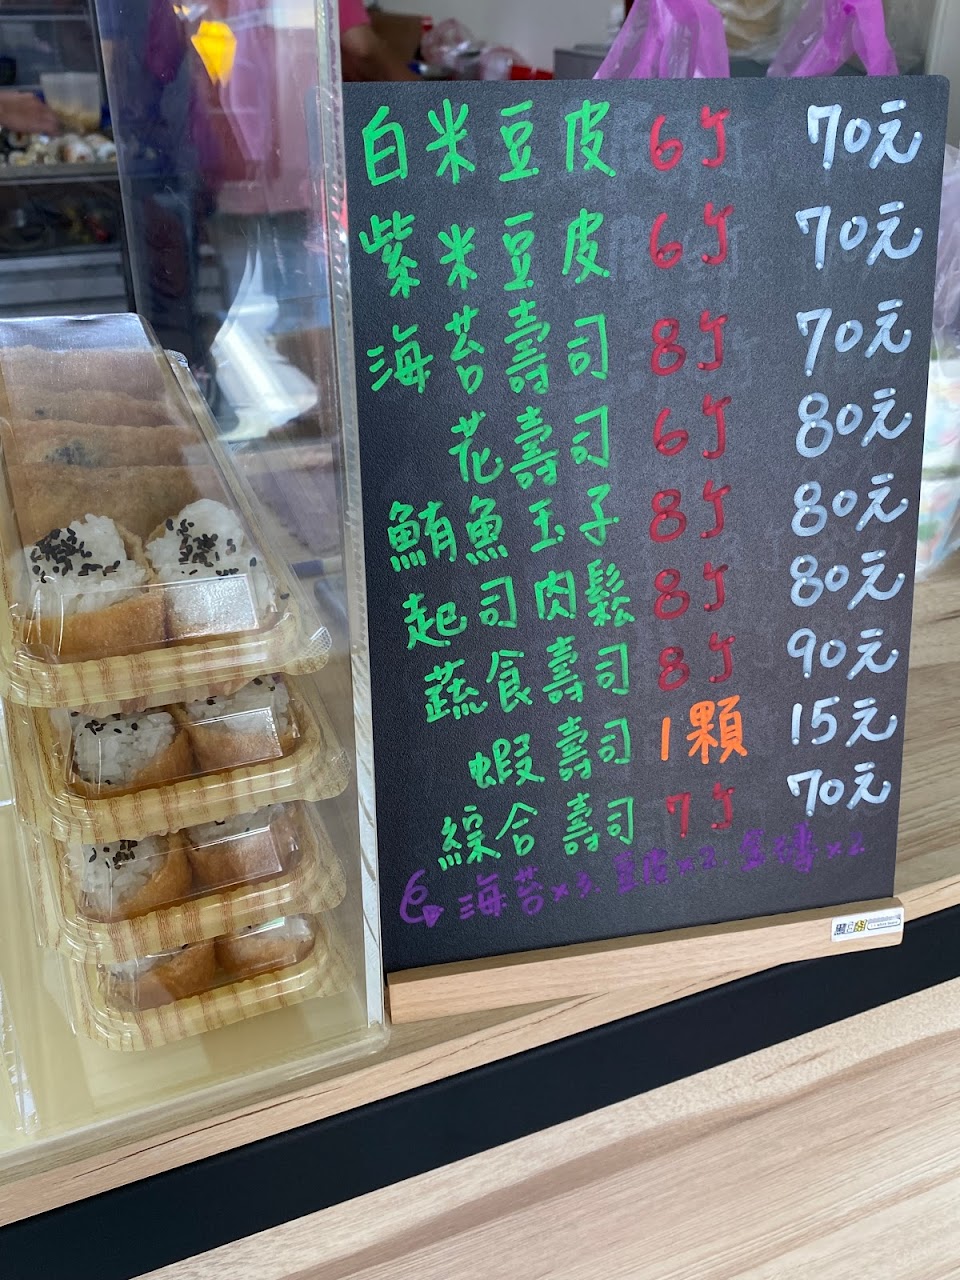 白米豆皮 6丁 70元
紫米豆皮 6丁 70元
海苔壽司 8丁 70元
花壽司 6丁 80元
鮪魚玉子 8丁 80元
起司肉鬆 8丁 80元
蔬食壽司 8丁 90元
蝦壽司 1顆 15元
綜合壽司 7丁 70元
海苔×3 豆皮×2 ×2